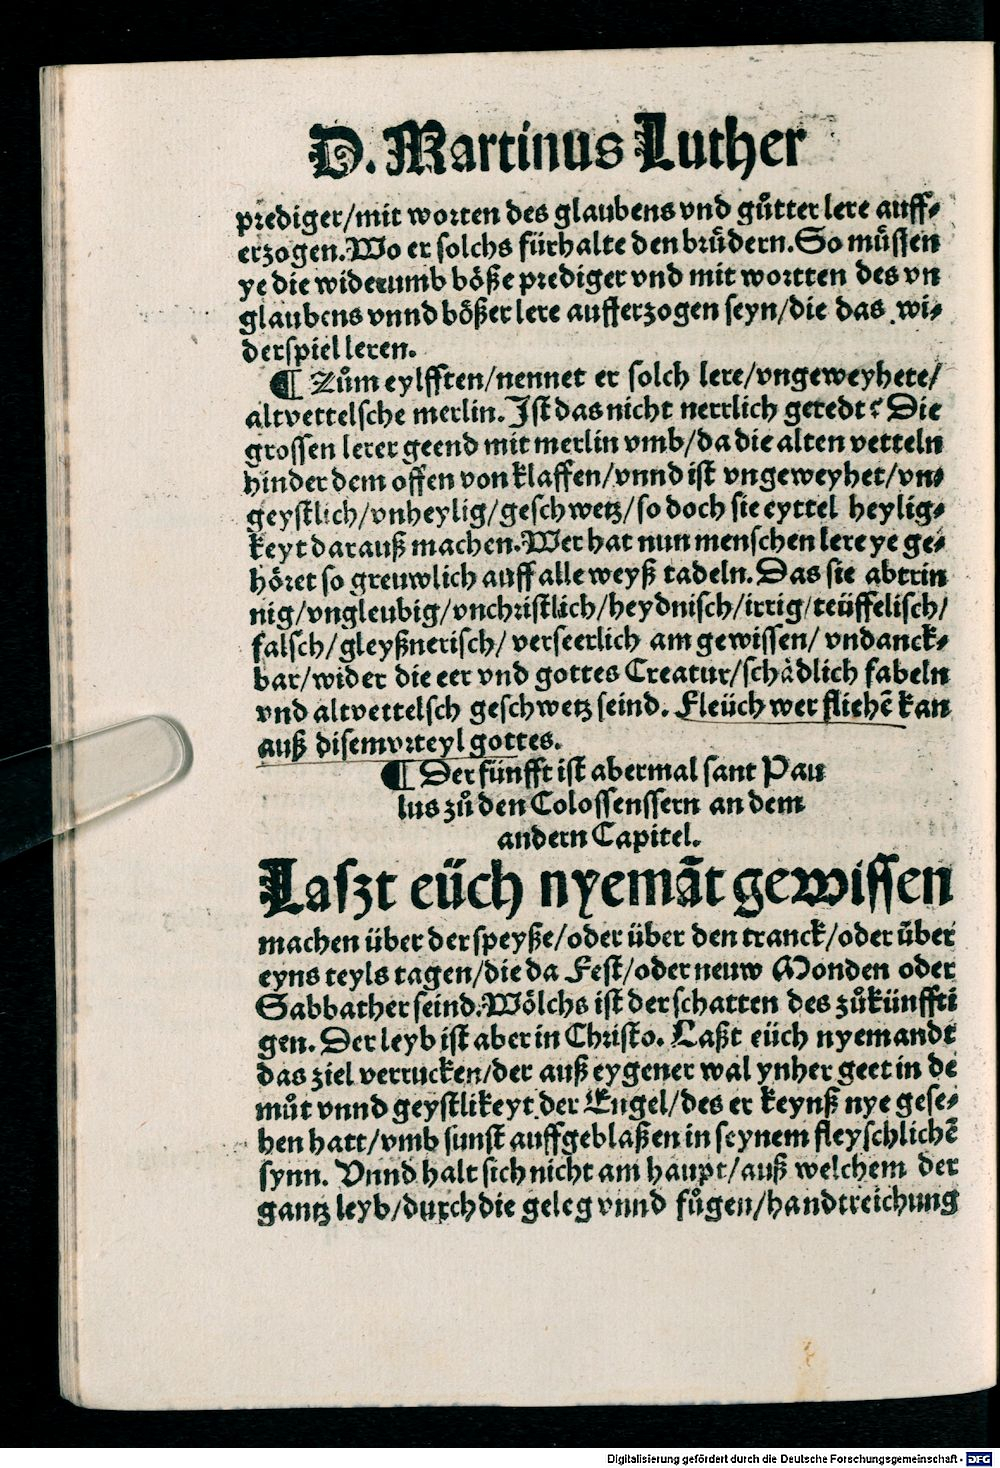 D. Martinus Luther
prediger/mit worten des glaubens vnd gůtter lere auff⸗
erzogen. Wo er solchs fürhalte den brüdern. So müssen
ye die widerumb böße prediger vnd mit wortten des vn
glaubens vnnd bößer lere aufferzogen seyn/die das wi⸗
derspiel leren.
¶ Zům eylfften/nennet er solch lere/vngeweyhete/
altvettelsche merlin. Ist das nicht nerrlich geredt? Die
grossen lerer geend mit merlin vmb/da die alten vetteln
hinder dem offen von klaffen/vnnd ist vngeweyhet/vn⸗
geystlich/vnheylig/geschwetz/so doch sie eyttel heylig⸗
keyt darauß machen. Wer hat nun menschen lere ye ge⸗
höret so greuwlich auff alle weyß tadeln. Das sie abtrin
nig/vngleubig/vnchristlich/heydnisch/irrig/teüffelisch/
falsch/gleyßnerisch/verseerlich am gewissen/vndanck⸗
bar/wider die eer vnd gottes Creatur/schådlich fabeln
vnd altvettelsch geschwetz seind. Fleüch wer fliehē kan
auß disem vrteyl gottes.
¶ Der fünfft ist abermal sant Pau
lus zů den Colossenssern an dem
andern Capitel.
Laszt eüch nyemāt gewissen
machen über der speyße/oder über den tranck/oder über
eyns teyls tagen/die da Fest/oder neuw Monden oder
Sabbather seind. Wölchs ist der schatten des zůkünffti
gen. Der leyb ist aber in Christo. Laßt eüch nyemandt
das ziel verrucken/der auß eygener wal ynher geet in de
můt vnnd geystlikeyt der Engel/des er keynß nye gese⸗
hen hatt/vmb sunst auffgeblaßen in seynem fleyschlichē
synn. Vnnd halt sich nicht am haupt/auß welchem der
gantz leyb/durch die geleg vnnd fůgen/handtreichung
Digitalisierung gefördert durch die Deutsche Forschungsgemeinschaft - DFG